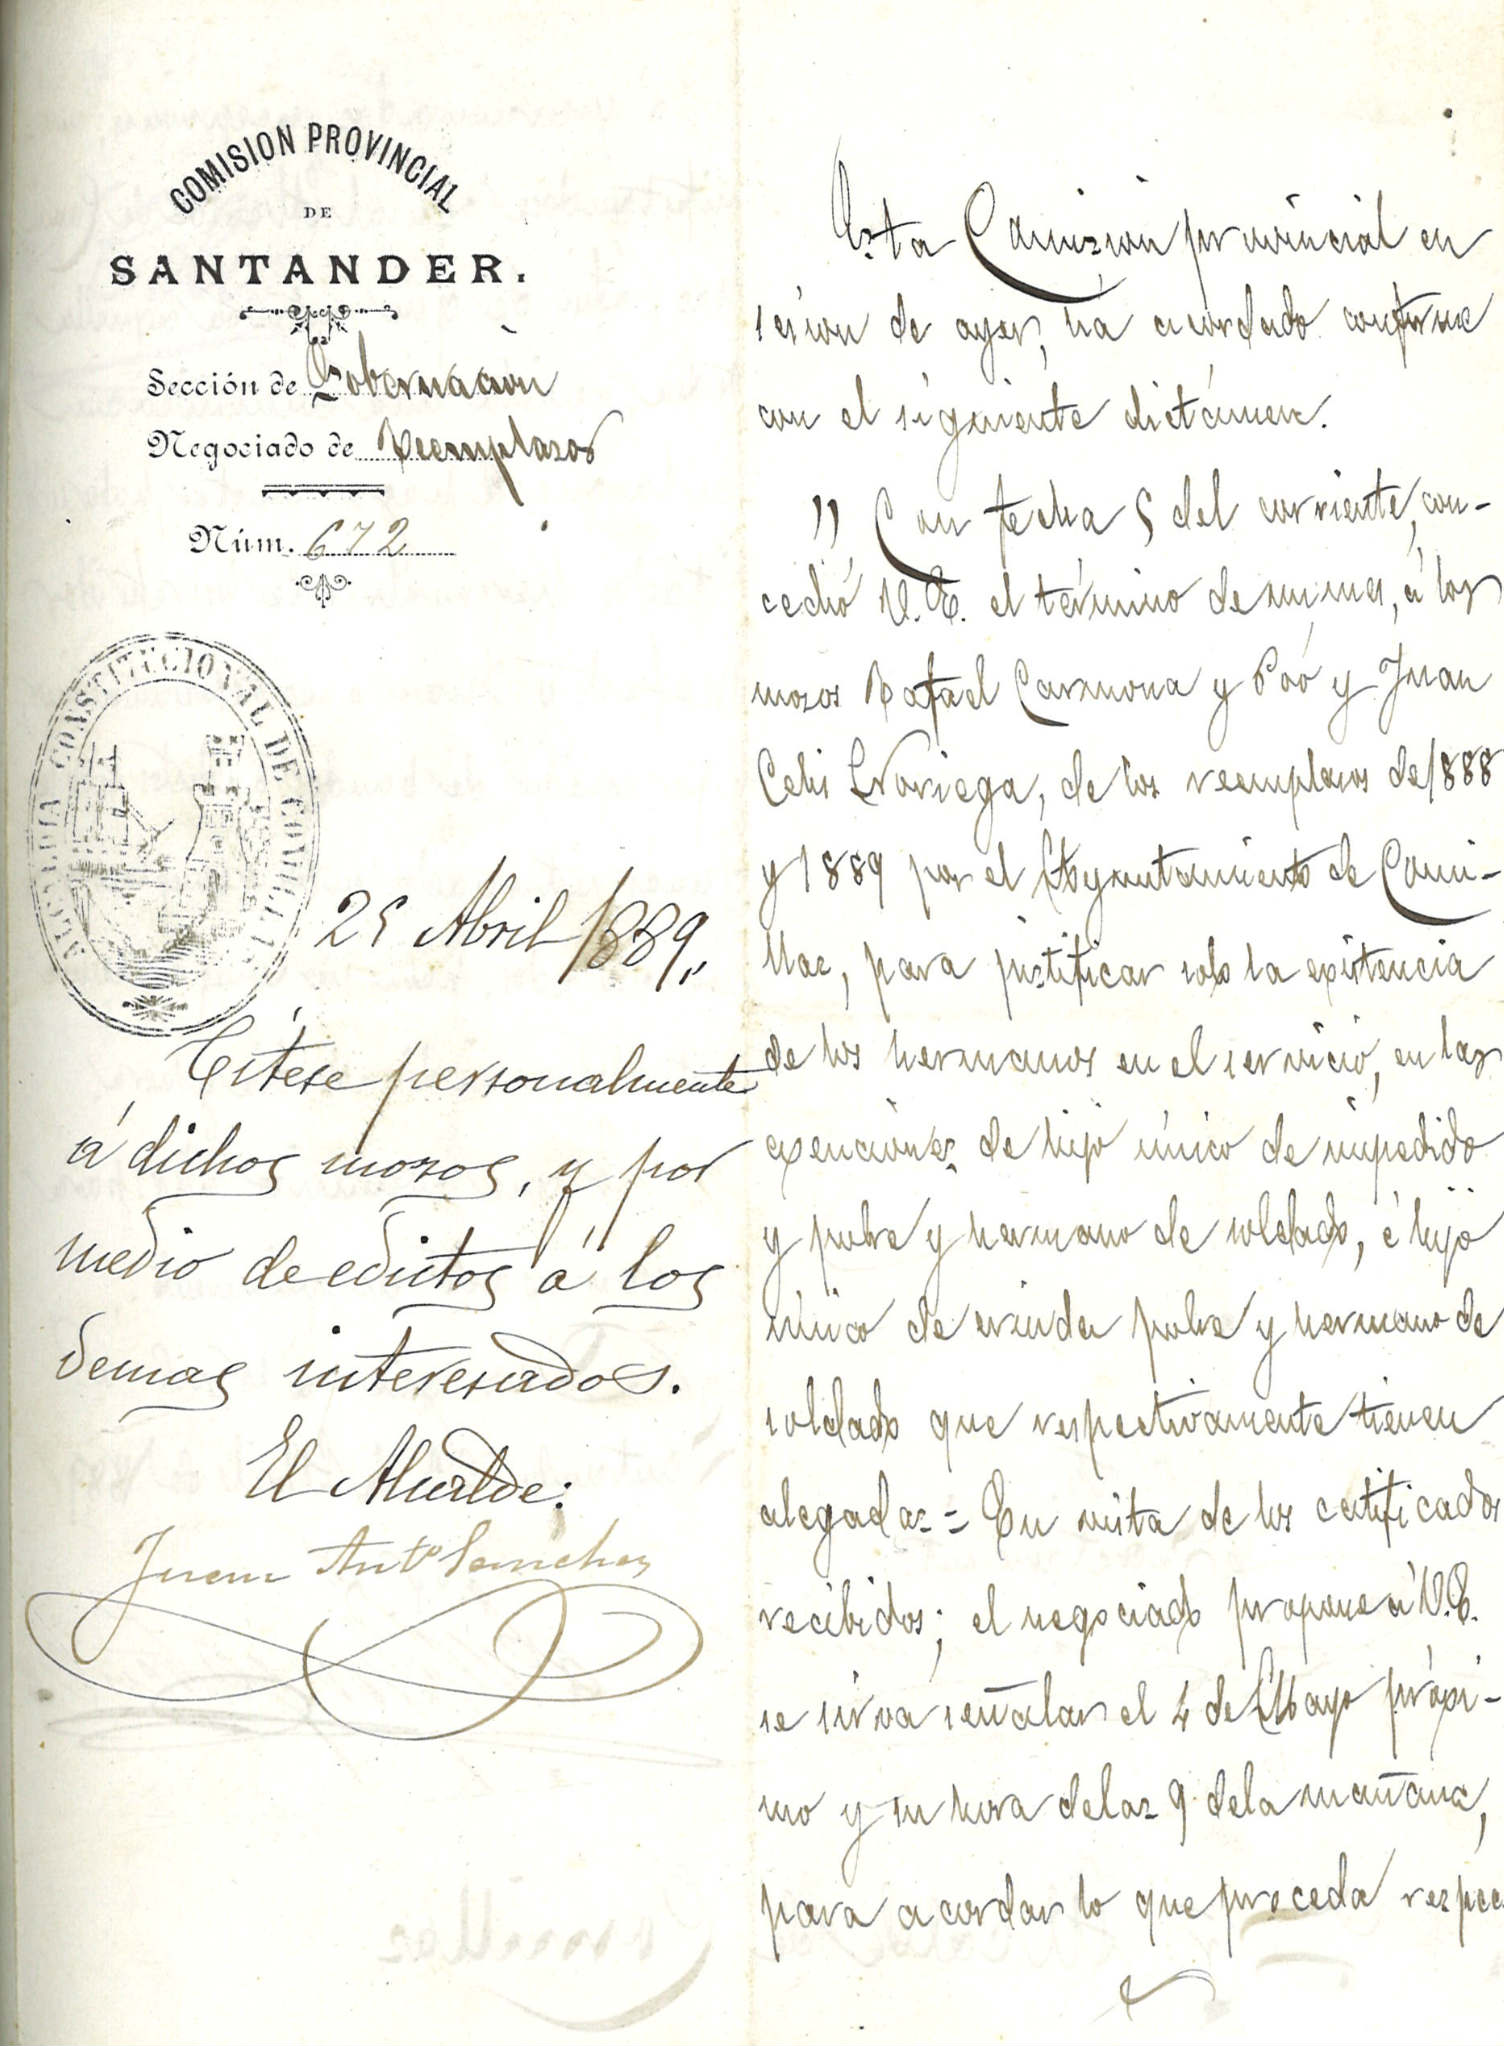 COMISION PROVINCIAL
DE
SANTANDER.
Sección de Gobernación
Negociado de Reemplazos
Núm. 672
ALCALDIA CONSTITUCIONAL DE COMILLAS
25 Abril 1889,,
Cítese personalmente
á dichos mozos, y por
medio de edictos á los
demas interesados.
El Alcalde:
Juan Antº Sanchez
Esta Comision provincial en
sesion de ayer, há acordado conforme
con el siguiente dictámen.
" Con fecha 5 del corriente, con-
cedió V. E. el término de un mes, á los
mozos Rafael Carmona y Poó y Juan
Celis Noriega, de los reemplazos de 1888
y 1889 por el Ayuntamiento de Comi-
llas, para justificar solo la existencia
de los hermanos en el servicio, en las
exenciones de hijo único de impedido
y pobre y hermano de soldado, é hijo
único de viuda pobre y hermano de
soldado que respectivamente tienen
alegadas = En vista de los certificados
recibidos; el negociado propone á V. E.
se sirva señalar el 4 de Mayo próxi-
mo y su hora de las 9 de la mañana,
para acordar lo que proceda respec